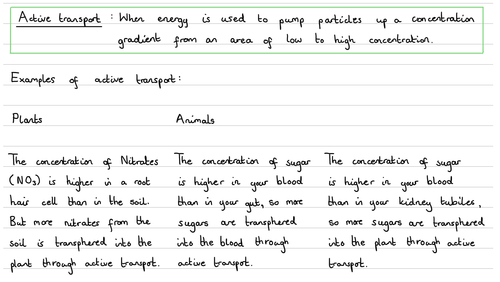 Active transport : When energy is used to pump particles up a concentration
gradient from an area of low to high concentration.
Examples of active transport:
Plants
Animals
The concentration of Nitrates
(NO3) is higher in a root
hair cell than in the soil.
But more nitrates from the
soil is transphered into the
plant through active transpot.
The concentration of sugar
is higher in your blood
than in your gut, so more
sugars are transphered
into the blood through
active transpot.
The concentration of sugar
is higher in your blood
than in your kidney tubules,
so more sugars are transphered
into the plant through active
transpot.